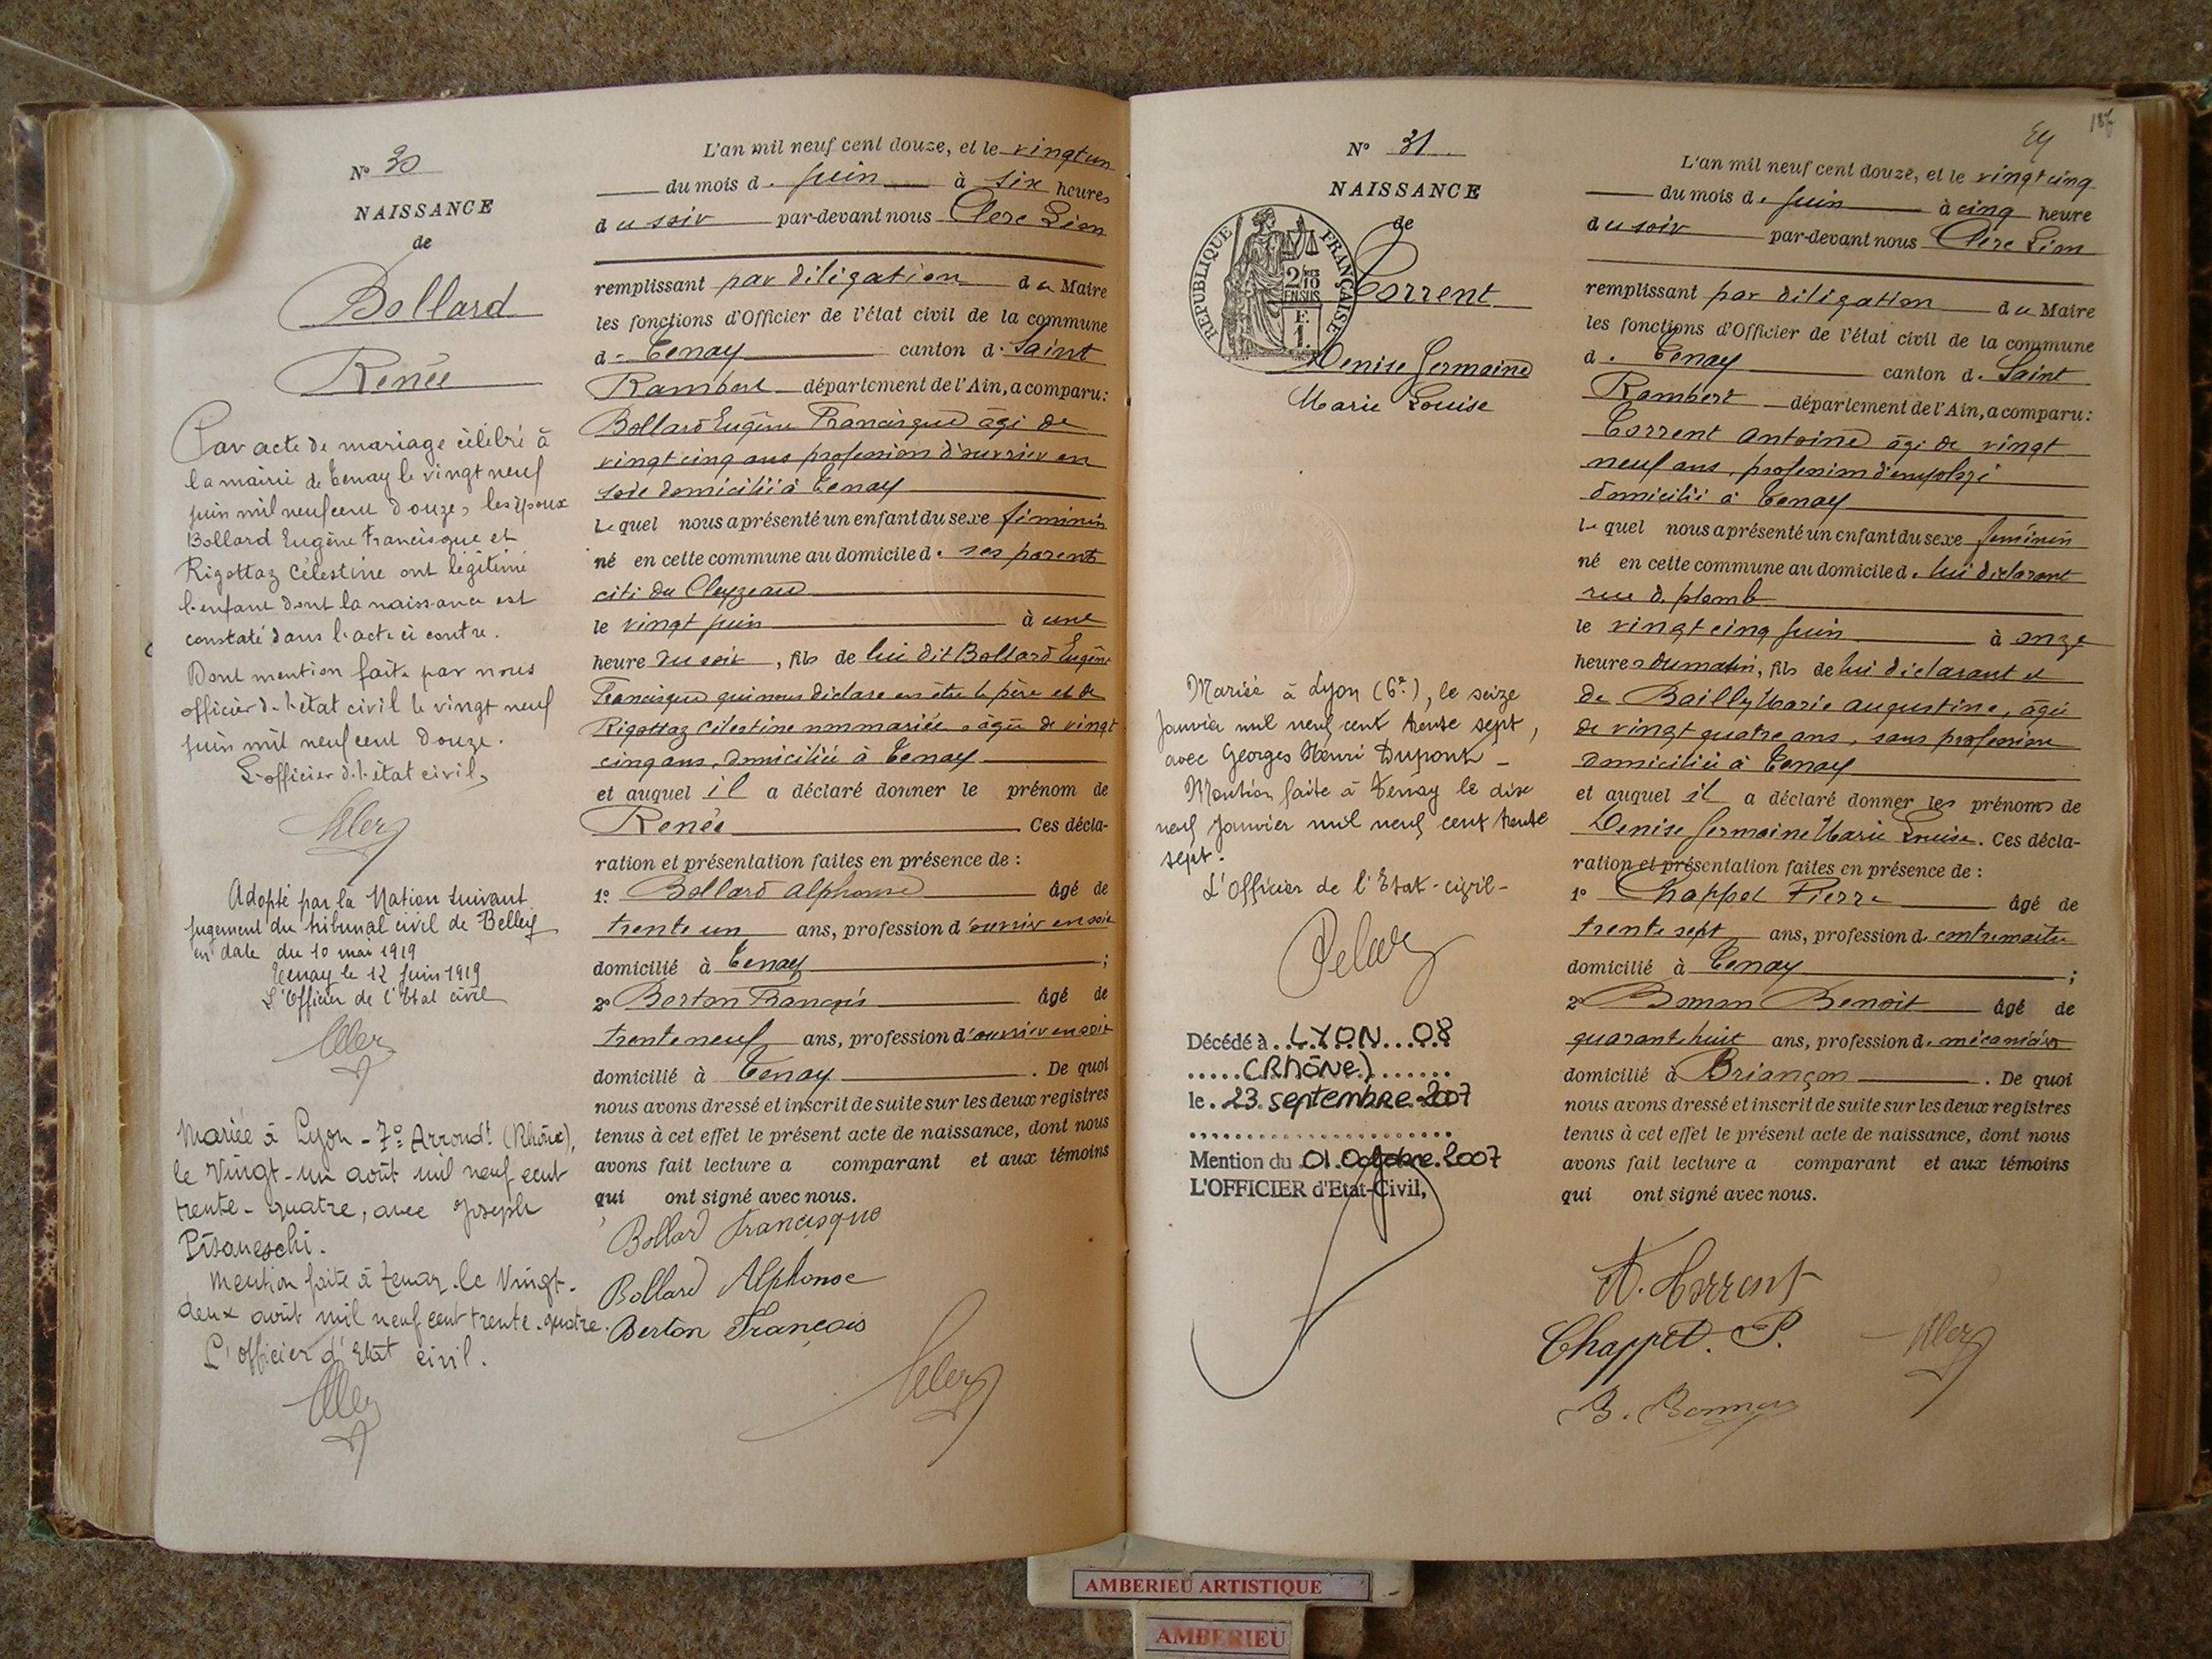 N° 30
NAISSANCE
de
Bollard
Renée
Par acte de mariage célébré à
la mairie de Tenay le vingt neuf
juin mil neuf cent douze, les époux
Bollard Eugène Francisque et
Rigottaz Célestine ont légitimé
l'enfant dont la naissance est
constaté dans l'acte ci contre.
Dont mention faite par nous
officier de l'état civil le vingt neuf
juin mil neuf cent douze.
L'officier de l'état civil,
Adopté par la Nation suivant
jugement du tribunal civil de Belley
en date du 10 mai 1919
Tenay le 12 juin 1919
L'Officier de l'Etat civil
Mariée à Lyon - 7e Arrondt (Rhône),
le Vingt-un août mil neuf cent
trente-quatre, avec Joseph
Pisaneschi.
Mention faite à Tenay le Vingt-
deux août mil neuf cent trente-quatre.
L'officier d'Etat civil.
L'an mil neuf cent douze, et le vingt un
du mois de juin à six heures
du soir par-devant nous Clerc Léon
remplissant par déligation du Maire
les fonctions d'Officier de l'état civil de la commune
de Tenay canton de Saint
Rambert département de l'Ain, a comparu:
Bollard Eugène Francisque âgé de
vingt cinq ans profession d'ouvrier en
soie domicilié à Tenay
Lequel nous a présenté un enfant du sexe féminin
né en cette commune au domicile de ses parents
cité du Cleyzeau
le vingt juin à une
heure du soir, fils de lui dit Bollard Eugène
Francisque qui nous déclare en être le père et de
Rigottaz Célestine non mariée, âgée de vingt
cinq ans, domiciliée à Tenay
et auquel il a déclaré donner le prénom de
Renée Ces décla-
ration et présentation faites en présence de :
1° Bollard Alphonse âgé de
trente un ans, profession d'ouvrier en soie
domicilié à Tenay ;
2° Berton François âgé de
trente neuf ans, profession d'ouvrier en soie
domicilié à Tenay . De quoi
nous avons dressé et inscrit de suite sur les deux registres
tenus à cet effet le présent acte de naissance, dont nous
avons fait lecture a comparant et aux témoins
qui ont signé avec nous.
Bollard Francisque
Bollard Alphonse
Berton François
N° 31
NAISSANCE
de
RÉPUBLIQUE FRANÇAISE
2/10 EN SUS
F. 1.
Torrent
Denise Germaine
Marie Louise
Mariée à Lyon (6e), le seize
Janvier mil neuf cent trente sept,
avec Georges Henri Dupont -
Mention faite à Tenay le dix
neuf Janvier mil neuf cent trente
sept.
L'Officier de l'Etat-civil-
Décédé à LYON 08
(RHôNE)
le 23 septembre 2007
Mention du 01 Octobre 2007
L'OFFICIER d'Etat-Civil,
L'an mil neuf cent douze, et le vingt cinq
du mois de juin à cinq heure
du soir par-devant nous Clerc Léon
remplissant par déligation du Maire
les fonctions d'Officier de l'état civil de la commune
de Tenay canton de Saint
Rambert département de l'Ain, a comparu:
Torrent Antoine âgé de vingt
neuf ans, profession d'employé
domicilié à Tenay
lequel nous a présenté un enfant du sexe féminin
né en cette commune au domicile de lui déclarant
rue de plomb
le vingt cinq juin à onze
heures du matin, fils de lui déclarant et
de Bailly Marie Augustine, âgée
de vingt quatre ans, sans profession
domiciliée à Tenay
et auquel il a déclaré donner les prénoms de
Denise Germaine Marie Louise. Ces décla-
ration et présentation faites en présence de :
1° Chappel Pierre âgé de
trente sept ans, profession de contremaître
domicilié à Tenay ;
2° Bonon Benoit âgé de
quarante huit ans, profession de mécanicien
domicilié à Briançon . De quoi
nous avons dressé et inscrit de suite sur les deux registres
tenus à cet effet le présent acte de naissance, dont nous
avons fait lecture a comparant et aux témoins
qui ont signé avec nous.
A. Torrent
Chappel. P.
AMBERIEU ARTISTIQUE
AMBERIEU